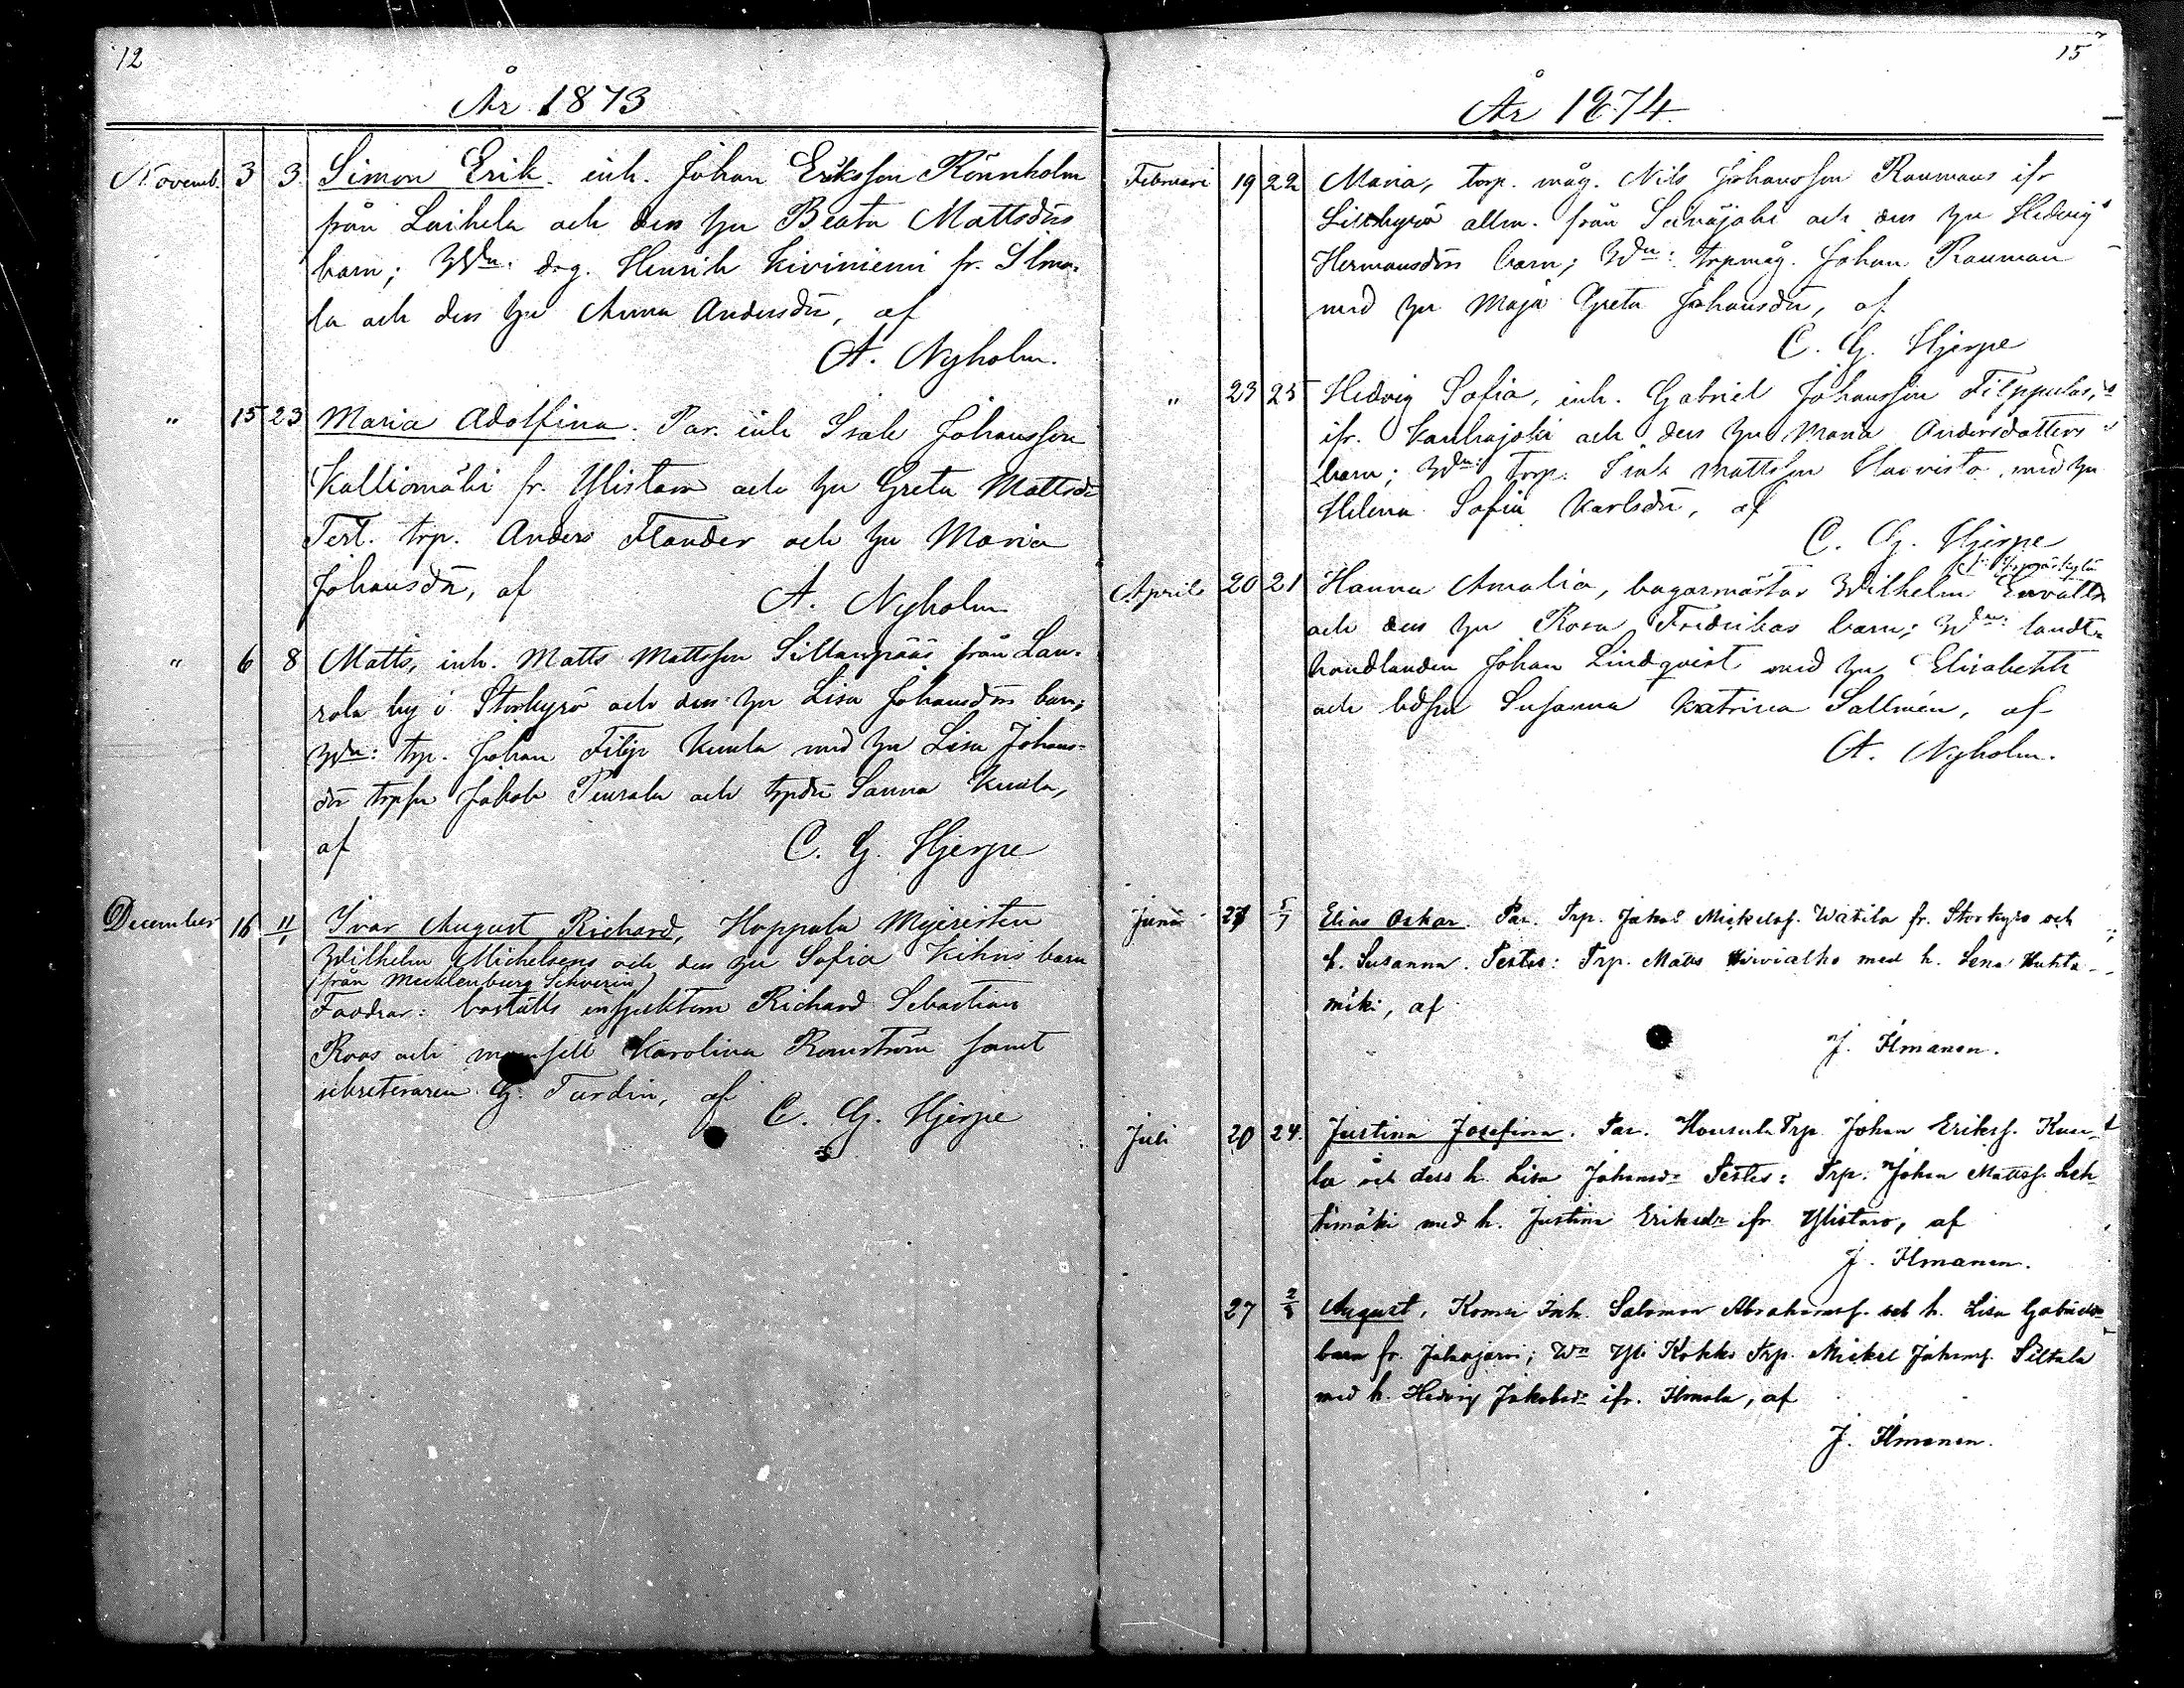 12
År 1873
Novemb. 3 3. Simon Erik. inh. Johan Eriksson Rönnholm
från Laihela och dess hu Beata Mattsdrs
barn; Wdn. drg. Henrik Kiviniemi fr. Ilmo-
la och dess hu Anna Andersdr, af
A. Nyholm.
" 15 23 Maria Adolfina. Par. inh Isak Johansson
Kalliomäki fr. Ylistaro och hu Greta Mattsdr
Test. trp. Anders Flander och hu Maria
Johansdr, af A. Nyholm
" 6 8 Matts, inh. Matts Mattsson Sillanpääs från Lau-
rola by i Storkyrö och dess hu Lisa Johansdrs barn;
Wdn: trp. Johan Filip Kuula med hu Lisa Johans-
dr trpsn Jakob Peurala och trpdr Sanna Kuula,
af C. G. Hjerpe
December 16 11/1 Ivar August Richard, Hoppala Mejeristen
Wilhelm Michelsens och dess hu Sofia Kihns barn
(från Mecklenburg Schwerin)
Faddrar: boställs inspektorn Richard Sebastian
Roos och mamsell Karolina Romström samt
sekreteraren G. Turdin, af
C. G. Hjerpe
15
År 1874.
Februari 19 22 Maria, torp. måg. Nils Johansson Raumans ifr
allm. från och dess hu Hedvig
Hermansdrs barn; Wdn: trpmåg. Johan Rauman
med hu Maja Greta Johansdr, af
C. G. Hjerpe
" 23 25 Hedvig Sofia, inh. Gabriel Johansson Filppulas,
ifr. Kauhajoki och dess hu Maria Andersdotters
barn; Wdn: Torp. Isak Mattsson Haavisto med hu
Helena Sofia Karlsdr, af
C. G. Hjerpe
April 20 21 Hanna Amalia, bagarmästar Wilhelm Envalls
och dess hu Rosa Fredrikas barn; Wdn: landt-
handlanden Johan Lindqvist med hu Elisabeth
och Susanna Katrina Sallmén, af
A. Nyholm.
Junii 27 5/7 Elias Oskar. Par. Trp. Jakob Mickelsf. Watila fr. Storkyro och
h. Susanna. Testes: Trp. Matts Hirvialho med h. Lena Huhta-
mäki, af
J. Ilmanen.
Juli 20 24. Justina Josefina. Par. Trp. Johan Eriksf. Kuu-
la och dess h. Lisa Johansdr Testes: Trp. Johan Mattsf. Leh-
timäki med h. Justina Eriksdr ifr. Ylistaro, af
J. Ilmanen.
27 2/8 August, Inh. Salomon Abrahamsf. och h. Lisa Gabrielsdr
barn fr. Jalasjärvi; Wn Yli Kokko Trp. Mickel Johansf. Siltala
med h. Hedvig Jakobsdr ifr. Ilmola, af
J. Ilmanen.